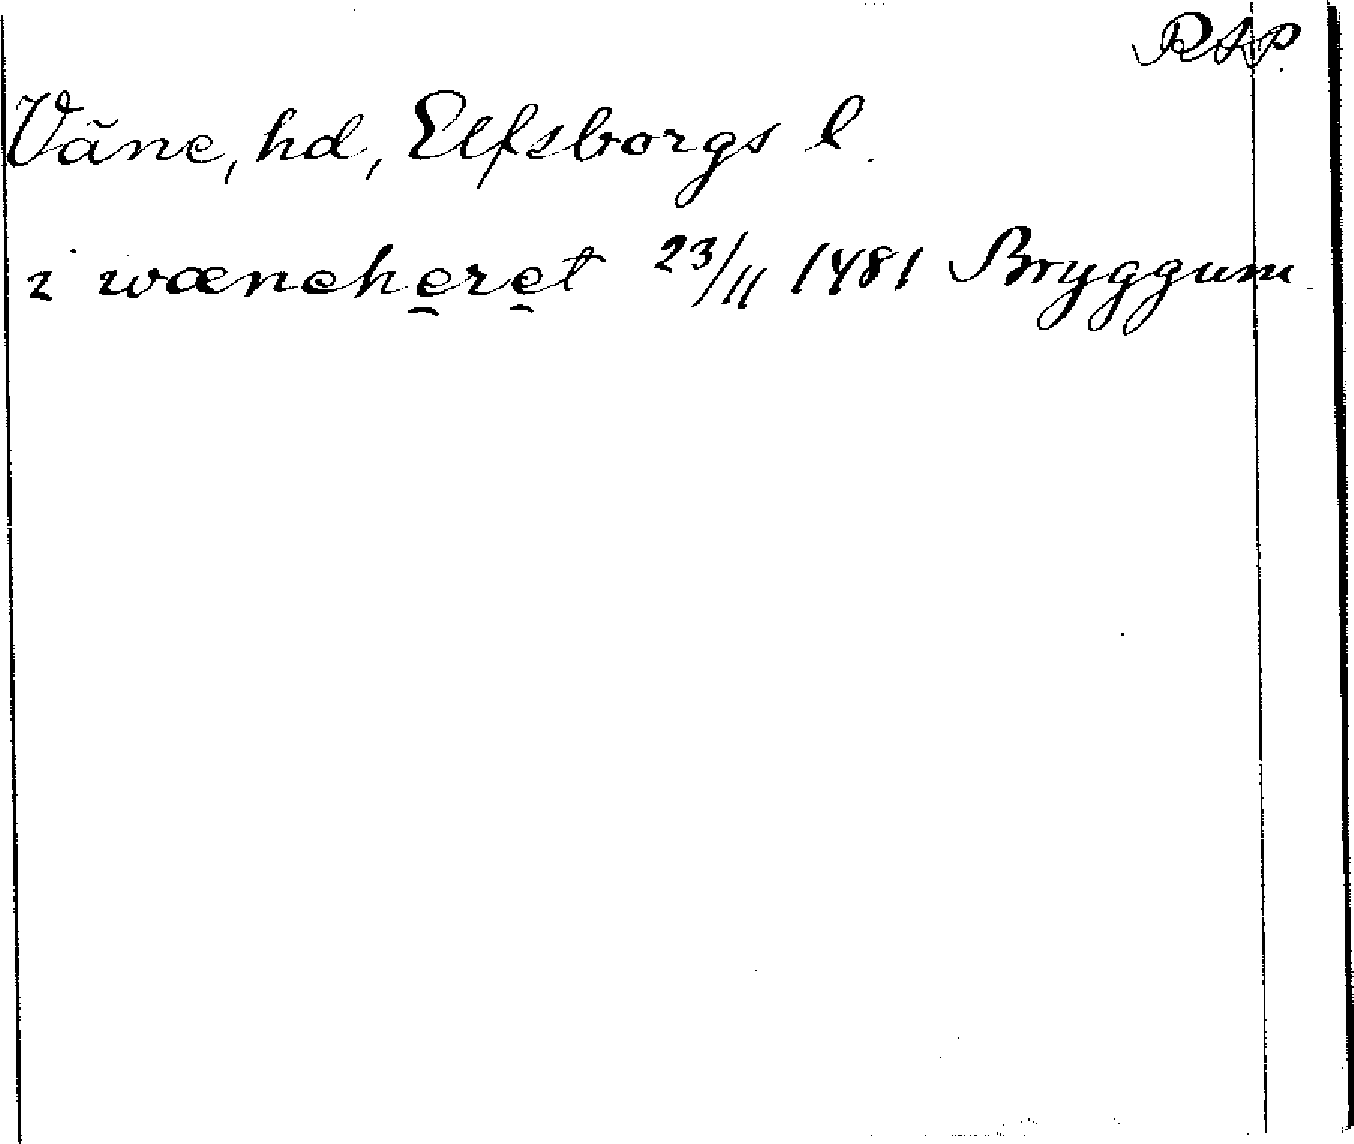 RAP.
Väne, hd, Elfsborgs l.
i wæneheret 23/11 1481 Bryggum